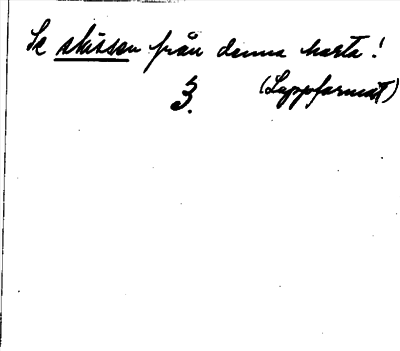 Se skissen från denna karta!
3. (Lappformat)